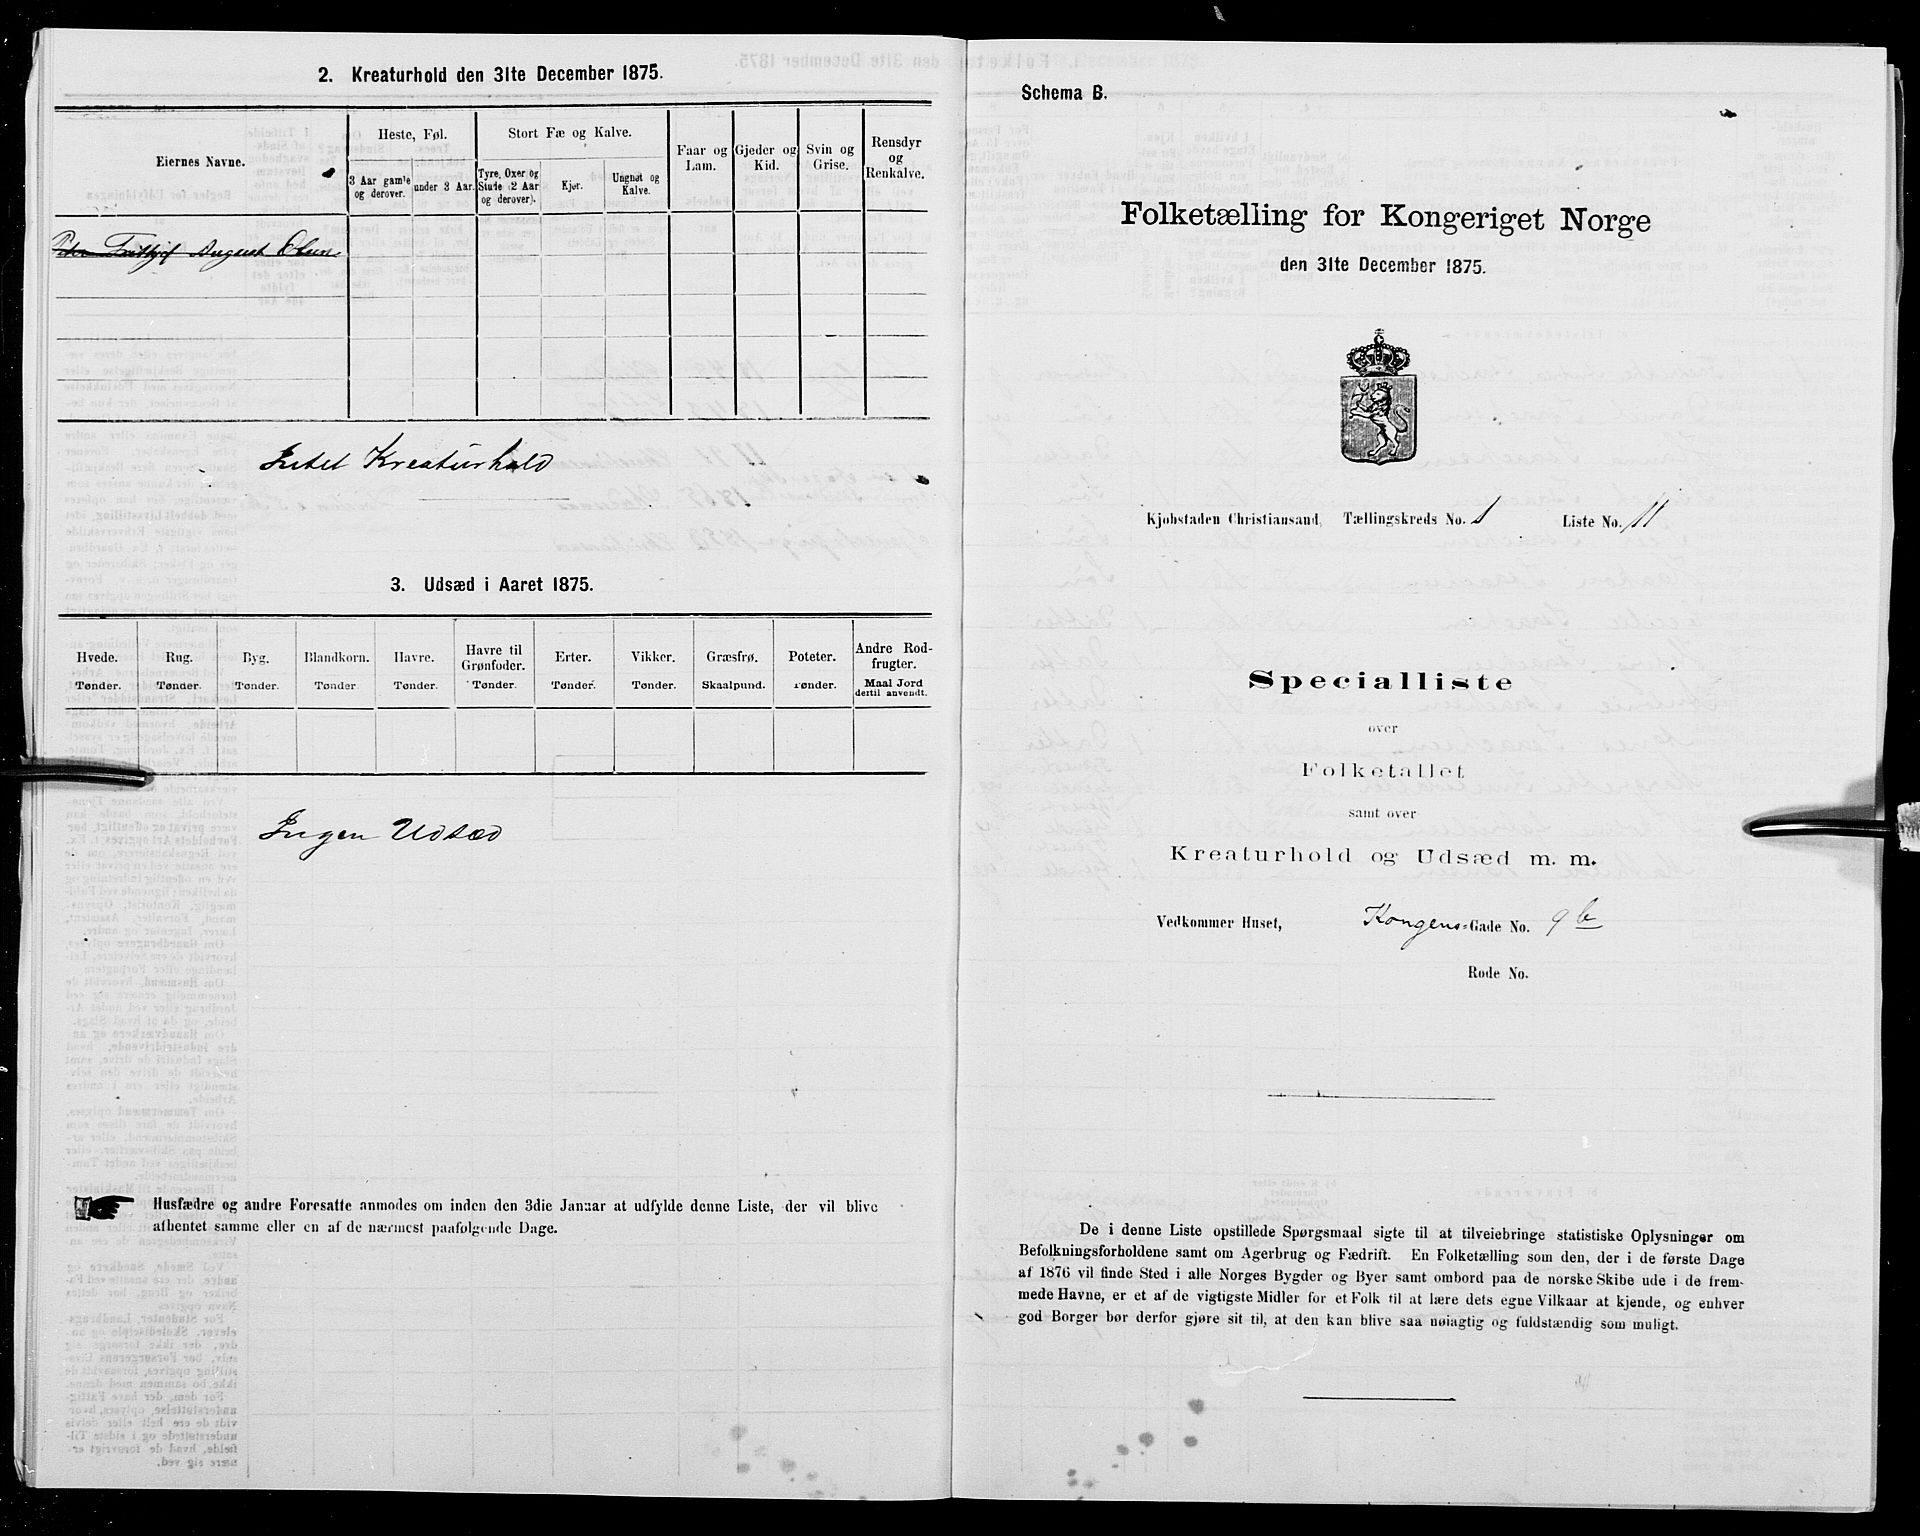 2. Kreaturhold den 31te December 1875.
Eiernes Navne.
Heste, Føl.
Stort Fæ og Kalve.
Faar og Lam.
Gjeder og Kid.
Svin og Grise.
Rensdyr og Renkalve.
3 Aar gamle og derover.
under 3 Aar.
Tyre, Oxer og Stude (2 Aar og derover).
Kjør.
Ungnøt og Kalve.
August Olsen
Intet Kreaturhold
3. Udsæd i Aaret 1875.
Hvede. Rug. Byg. Blandkorn. Havre. Havre til Grønfoder. Erter. Vikker. Græsfrø. Poteter. Andre Rodfrugter.
Tønder. Tønder. Tønder. Tønder Tønder. Tønder. Tønder. Tønder. Skaalpund. Tønder. Maal Jord dertil anvendt.
Ingen Udsæd
Husfædre og andre Foresatte anmodes om inden den 3die Januar at udfylde denne Liste, der vil blive
afhentet samme eller en af de nærmest paafølgende Dage.
Schema B.
Folketælling for Kongeriget Norge
den 31te December 1875.
Kjøbstaden Christiansand, Tællingskreds No. 1 Liste No. 11
Specialliste
over
Folketallet
samt over
Kreaturhold og Udsæd m. m.
Vedkommer Huset, Kongens-Gade No. 9b
Rode No.
De i denne Liste opstillede Spørgsmaal sigte til at tilveiebringe statistiske Oplysninger om
Befolkningsforholdene samt om Agerbrug og Fædrift. En Folketælling som den, der i de første Dage
af 1876 vil finde Sted i alle Norges Bygder og Byer samt ombord paa de norske Skibe ude i de frem-
mede Havne, er et af de vigtigste Midler for et Folk til at lære dets egne Vilkaar at kjende, og enhver
god Borger bør derfor gjøre sit til, at den kan blive saa nøiagtig og fuldstændig som muligt.